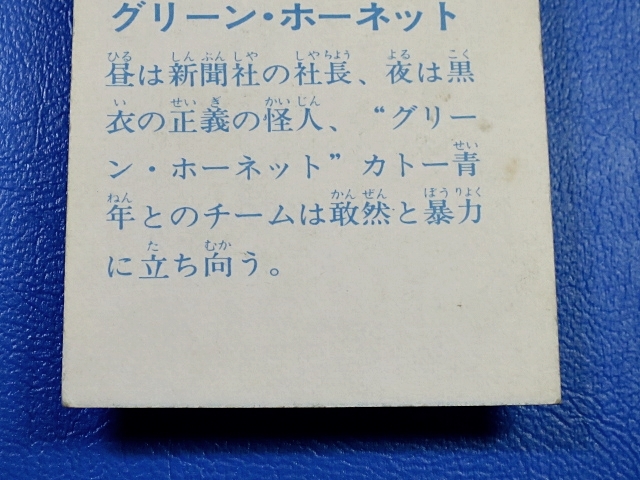 グリーン・ホーネット
昼は新聞社の社長、夜は黒
衣の正義の怪人、“グリー
ン・ホーネット”カトー青
年とのチームは敢然と暴力
に立ち向う。